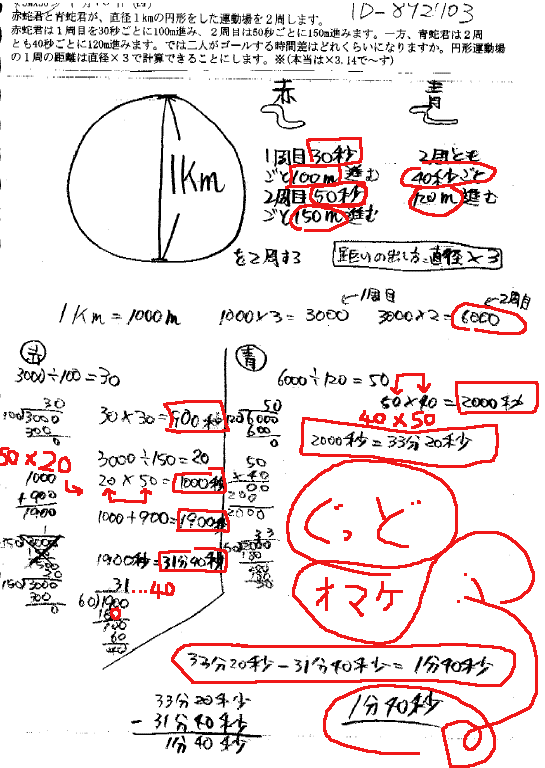 ID-842103
赤蛇君と青蛇君が、直径1kmの円形をした運動場を2周します。
赤蛇君は1周目を30秒ごとに100m進み、2周目は50秒ごとに150m進みます。一方、青蛇君は2周
とも40秒ごとに120m進みます。では二人がゴールする時間差はどれくらいになりますか。円形運動場
の1周の距離は直径×3で計算できることにします。※(本当は×3.14で~す)
赤 青
1Km
1周目30秒
ごと100m進む
2周目50秒
ごと150m進む
2周とも
40秒ごと
120m進む
を2周する
距りの出し方=直径×3
1Km=1000m 1000×3=3000 ←1周目 3000×2=6000 ←2周目
赤
3000÷100=30
30
100)3000
300
0
30×30=900秒
50×20
3000÷150=20
1000
+900
1900
20×50=1000秒
1000+900=1900秒
1900秒=31分40秒
150)3000
300
0
31...40
60)1900
180
100
60
40
青
6000÷120=50
50×40=2000秒
40×50
50
120)6000
600
0
2000秒=33分20秒
50
×40
00
200
2000
33
180
ぐっど
オマケ
33分20秒-31分40秒=1分40秒
33分20秒
-31分40秒
1分40秒
1分40秒